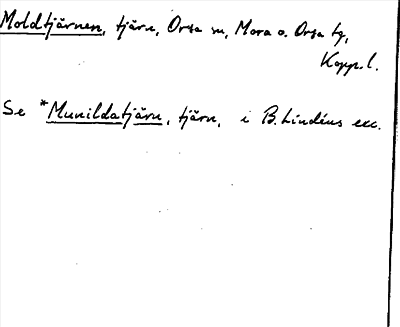 Moldtjärnen, tjärn, Orsa sn, Mora o. Orsa tg,
Kopp. l.
Se *Munildatjärn, tjärn, i B. Lindéns exc.